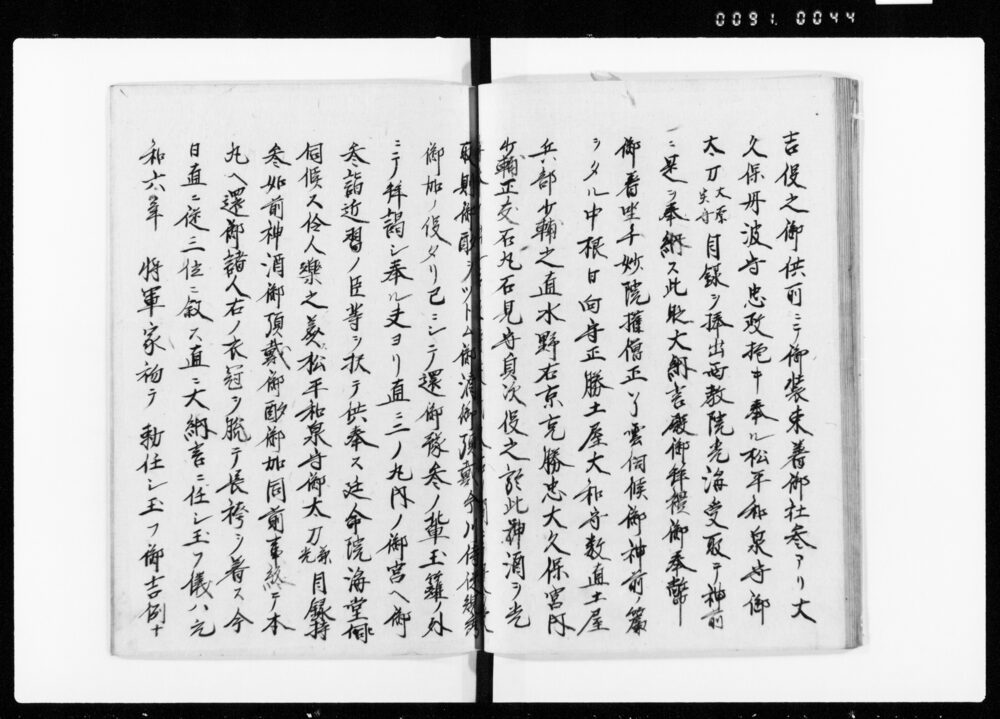 0091.0044
吉役之御供所ニテ御装束着御社参アリ大
久保丹波守忠政抱キ奉ル松平和泉守御
太刀大原実守目録ヲ捧出西教院光海受取テ神前
ニ是ヲ奉納ス此時大納言殿御拝礼御奉幣
御着坐千妙院権僧正丫雲伺候御神前ノ簾
ヲタル中根日向守正勝土屋大和守数直土屋
兵部少輔之直水野右京亮勝忠大久保宮内
少輔正交石丸石見守貞次役之於此神酒ヲ光
御加ノ役タリ已ニシテ還御豫参ノ輩玉籬ノ外
ニテ拝謁シ奉ル丈ヨリ直ニ三ノ丸内ノ御宮ヘ御
参詣近習ノ臣等ヲ扶テ供奉ス延命院海堂
伺候ス伶人楽之奏松平和泉守御太刀兼光目録持
参如前神酒御頂戴御酌御加同前事終テ本
丸ヘ還御諸人右ノ衣冠ヲ脱テ長袴ヲ着ス今
日直ニ従三位ニ叙ス直ニ大納言ニ任シ玉フ儀ハ元
和六年 将軍家初テ勅任シ玉フ御吉例十